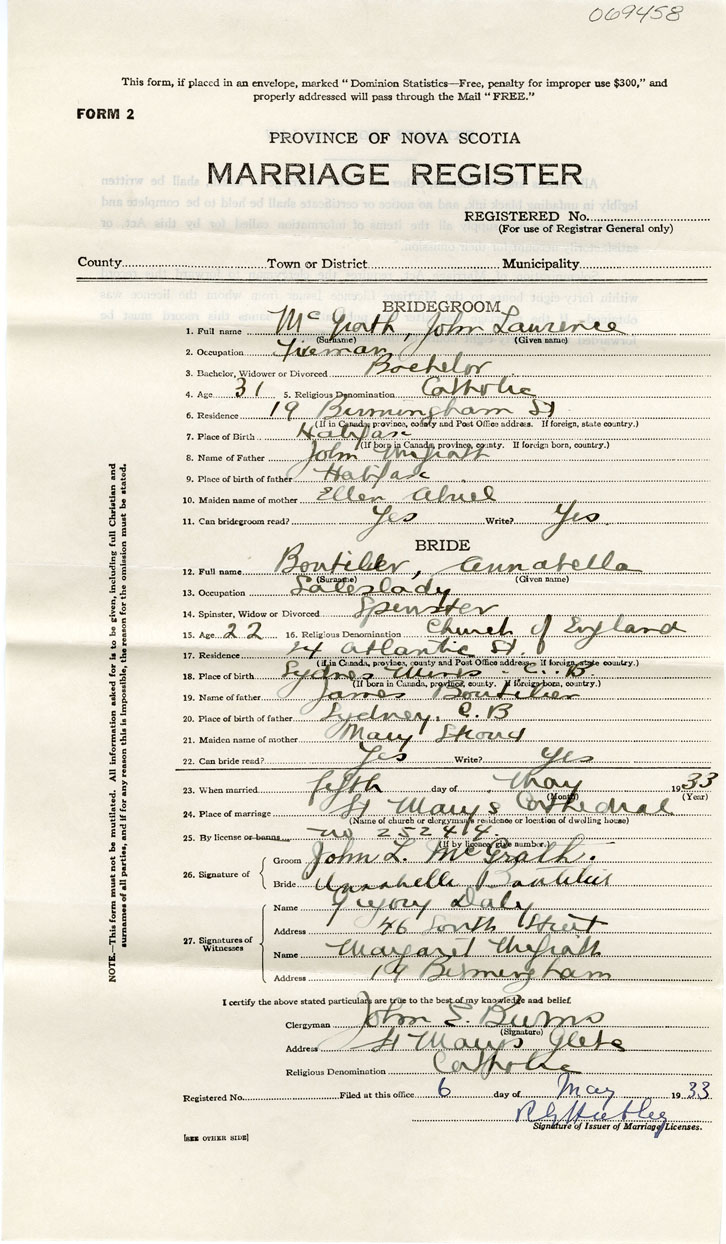 069458
This form, if placed in an envelope, marked "Dominion Statistics—Free, penalty for improper use $300," and
properly addressed will pass through the Mail "FREE."
FORM 2
PROVINCE OF NOVA SCOTIA
MARRIAGE REGISTER
REGISTERED No.
(For use of Registrar General only)
County Town or District Municipality
BRIDEGROOM
1. Full name McGrath, John Laurence
(Surname) (Given name)
2. Occupation Fireman
3. Bachelor, Widower or Divorced Bachelor
4. Age 31 5. Religious Denomination Catholic
6. Residence 19 Birmingham St
(If in Canada, province, county and Post Office address. If foreign, state country.)
7. Place of Birth Halifax
(If born in Canada, province, county. If foreign born, country.)
8. Name of Father John McGrath
9. Place of birth of father Halifax
10. Maiden name of mother Ellen
11. Can bridegroom read? Yes Write? Yes
BRIDE
12. Full name Boutilier, Annabella
(Surname) (Given name)
13. Occupation Saleslady
14. Spinster, Widow or Divorced Spinster
15. Age 22 16. Religious Denomination Church of England
17. Residence 24 Atlantic St.
(If in Canada, province, county and Post Office address. If foreign, state country.)
18. Place of birth Sydney Mines C.B.
(If born in Canada, province, county. If foreign born, country.)
19. Name of father James Boutilier
20. Place of birth of father Sydney, C.B
21. Maiden name of mother Mary
22. Can bride read? Yes Write? Yes
23. When married fifth day of May 1933
(Month) (Year)
24. Place of marriage St Mary's Cathedral
(Name of church or clergyman's residence or location of dwelling house)
25. By license or banns no 252414.
(If by licence give number.)
26. Signature of
Groom John L. McGrath.
Bride Annabelle Boutilier
27. Signatures of Witnesses
Name Gregory Daly
Address 46 South Street
Name Margaret McGrath
Address 19 Birmingham
I certify the above stated particulars are true to the best of my knowledge and belief.
Clergyman John E. Burns
(Signature)
Address St Mary's Glebe
Religious Denomination Catholic
Registered No. Filed at this office 6 day of May 1933
Signature of Issuer of Marriage Licenses.
[SEE OTHER SIDE]
NOTE.—This form must not be mutilated. All information asked for is to be given, including full Christian and
surnames of all parties, and if for any reason this is impossible, the reason for the omission must be stated.